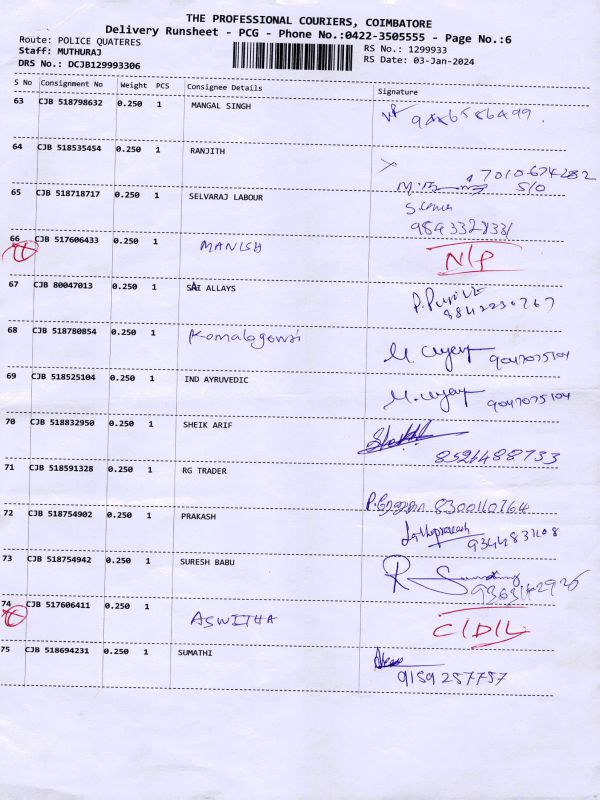 THE PROFESSIONAL COURIERS, COIMBATORE
Delivery Runsheet - PCG - Phone No.:0422-3505555 - Page No.:6
Route: POLICE QUATERES
RS No.: 1299933
Staff: MUTHURAJ
RS Date: 03-Jan-2024
DRS No.: DCJB129993306
S No Consignment No Weight PCS Consignee Details Signature
63 CJB 518798632 0.250 1 MANGAL SINGH
64 CJB 518535454 0.250 1 RANJITH
7010674282
S/O
65 CJB 518718717 0.250 1 SELVARAJ LABOUR
66 CJB 517606433 0.250 1 MANISH N/P
67 CJB 80047013 0.250 1 SAI ALLAYS
68 CJB 518780854 0.250 1 Komalagowri 9047075104
69 CJB 518525104 0.250 1 IND AYRUVEDIC 9047075104
70 CJB 518832950 0.250 1 SHEIK ARIF 8526488733
71 CJB 518591328 0.250 1 RG TRADER
72 CJB 518754902 0.250 1 PRAKASH
73 CJB 518754942 0.250 1 SURESH BABU
74 CJB 517606411 0.250 1 ASWITHA C/D/L
75 CJB 518694231 0.250 1 SUMATHI
9159257757